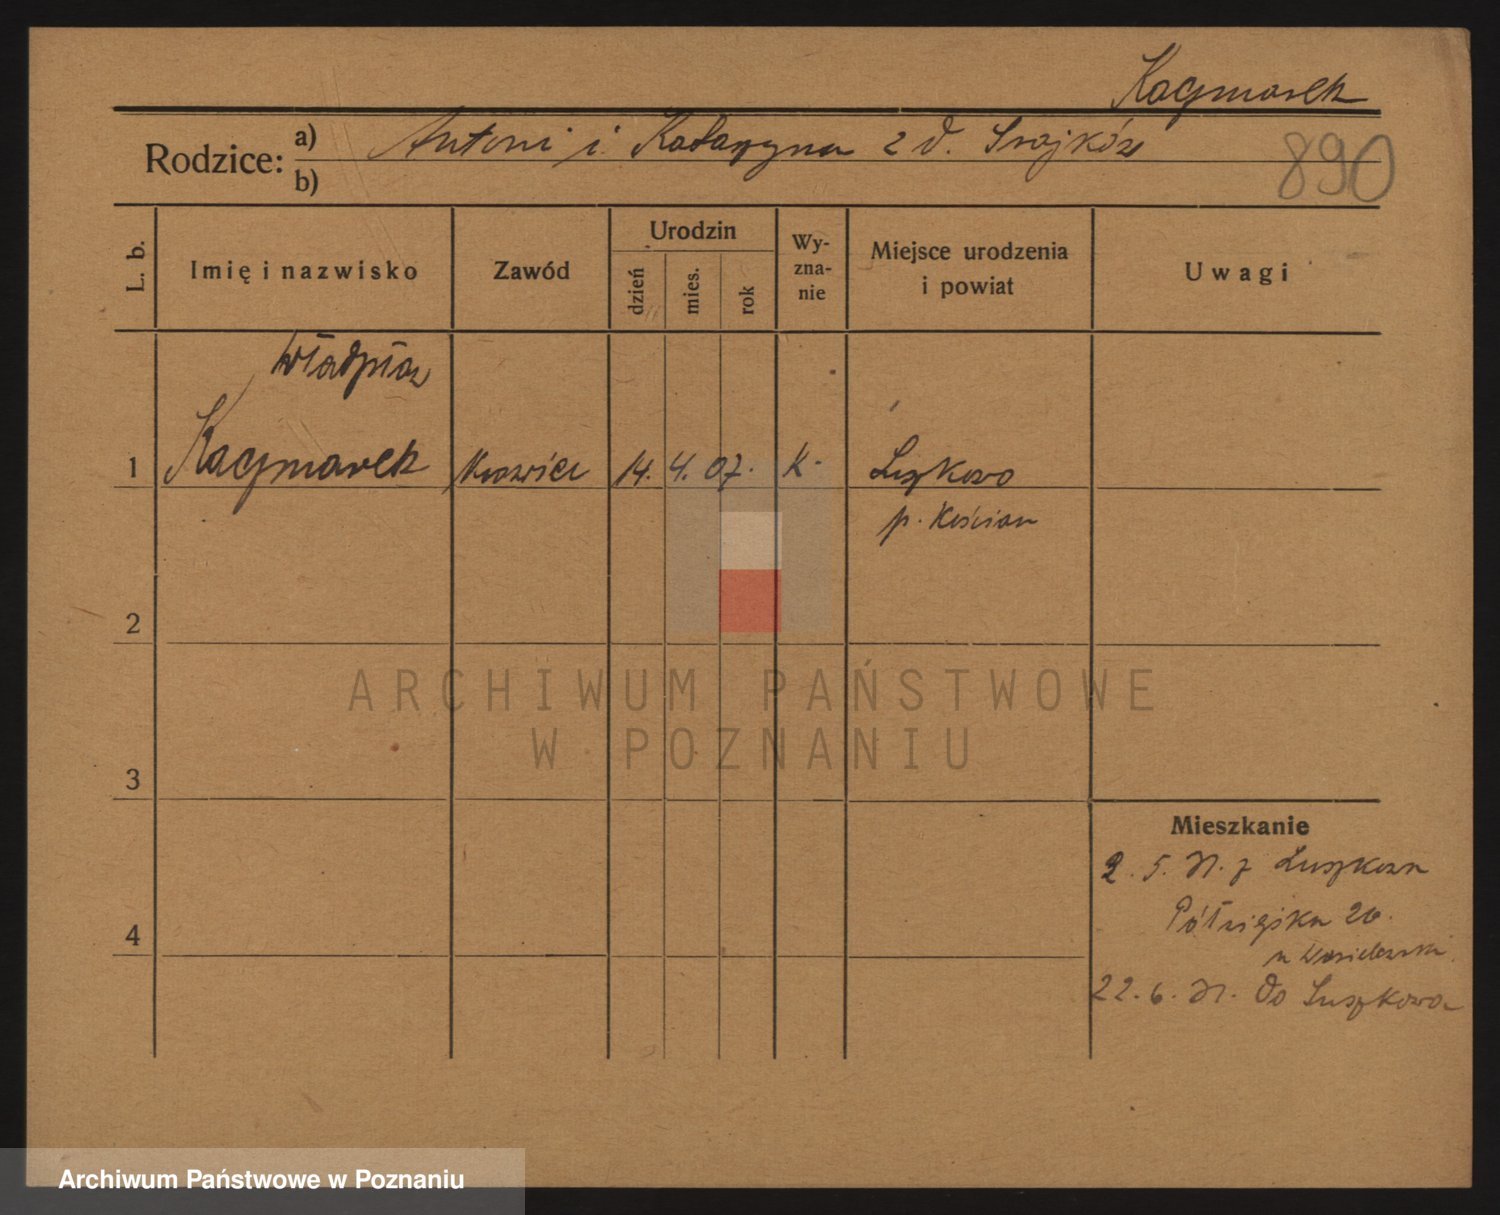 Kaczmarek
Rodzice: a) Antoni i Katarzyna z d.
b)
890
L. b. Imię i nazwisko Zawód Urodzin dzień mies. rok Wyznanie Miejsce urodzenia i powiat Uwagi
Władysław
1 Kaczmarek krawiec 14. 4. 07. K. Luszkowo
p. Kościan
2
3
4
Mieszkanie
2. 5. 31. z Luszkowa
Półwiejska 26.
u
22. 6. 31. do Luszkowa
ARCHIWUM PAŃSTWOWE
W POZNANIU
Archiwum Państwowe w Poznaniu